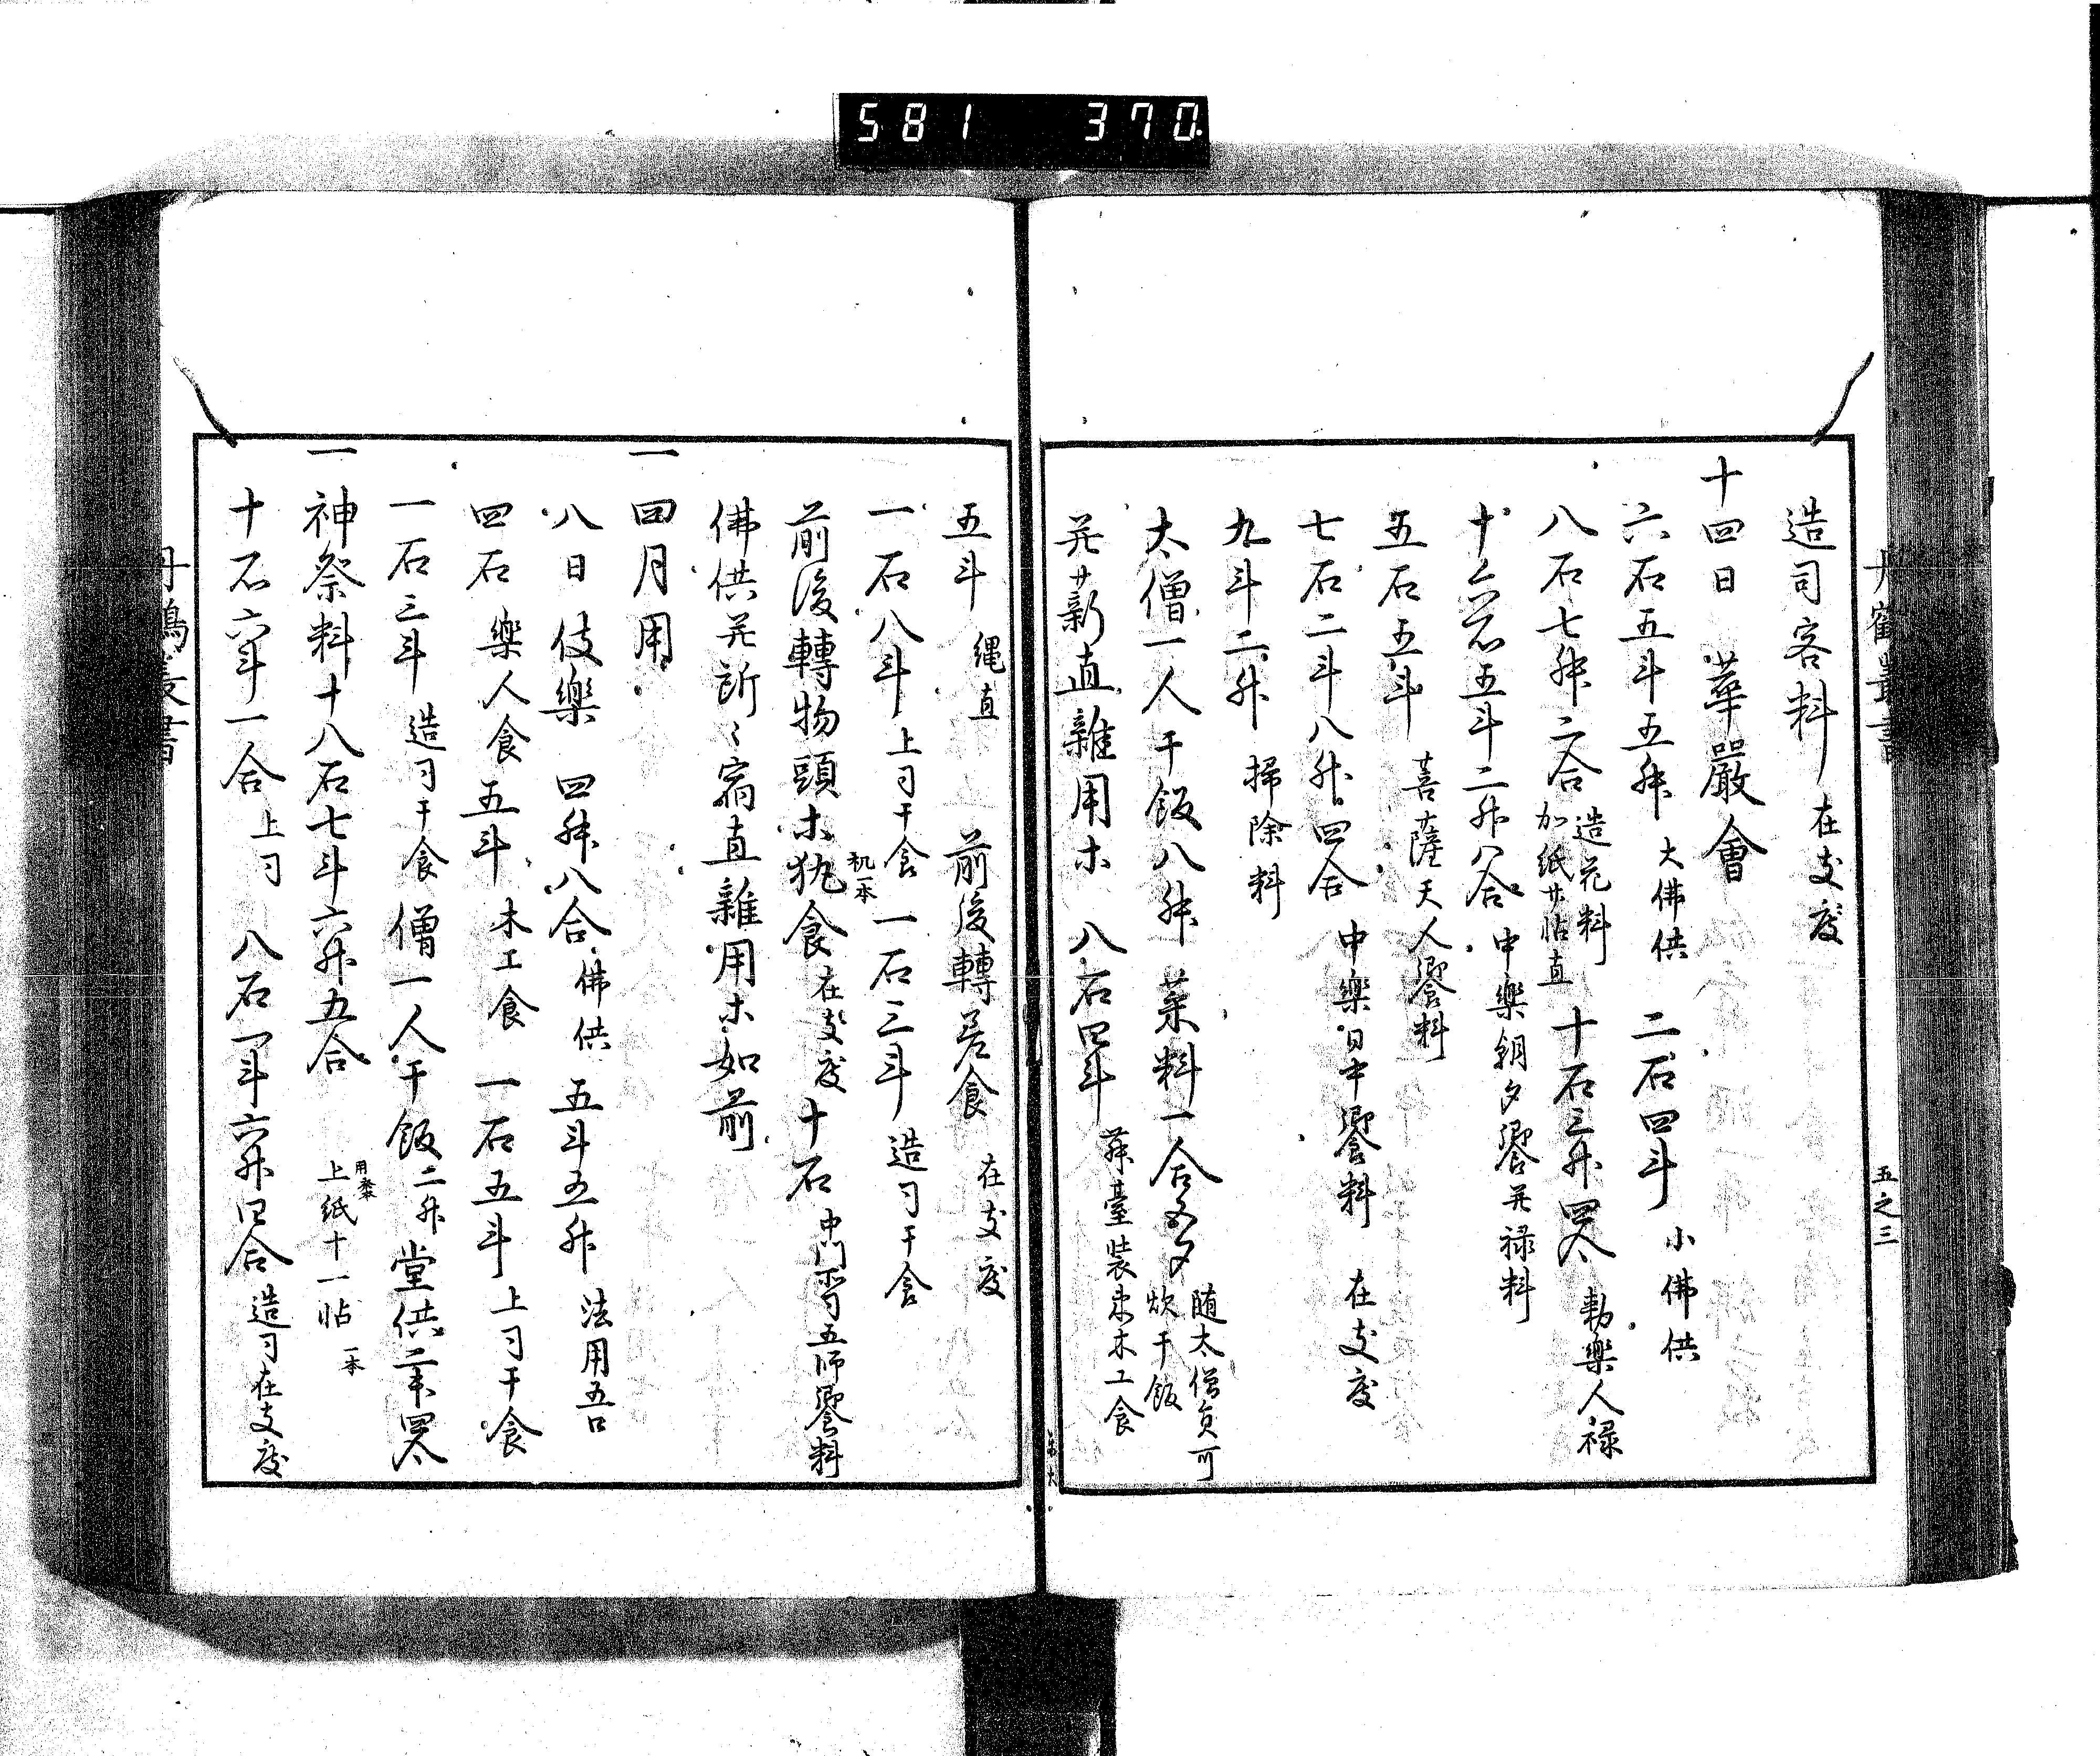 581 370
丹鶴叢書
五之三
造司客料 在支度
十四日 華嚴會
六石五斗五舛 大佛供 二石四斗 小佛供
八石七舛六合 造花料 加紙廿帖直 十石三舛四合 勅樂人禄
五斗二舛八合 中樂朝夕饗并禄料
五石五斗 菩薩天人饗料
七石二斗八舛四合 中樂日中饗料 在支度
九斗二舛 掃除料
太僧一人干飯八舛 菜料一合 随太僧負可 炊干飯
并薪直雜用ホ 八石四斗 舞臺裝束木工食
五斗 縄直 前後轉㕝食 在支度
一石八斗 上司干食 一石三斗 造司干食
前後轉物頭ホ 食 在支度 十石 五師饗料
佛供并 〻宿直雜用ホ如前
一 四月用
八日 伎樂 四舛八合 佛供 五斗五舛 法用五口
四石 樂人食 五斗 木工食 一石五斗 上司干食
一石三斗 造司干食 僧一人干飯二舛 堂供
一 神祭料十八石七斗六舛五合 上紙十一帖 一本
十石六斗一合 上司 八石一斗六舛四合 造司在支度
丹鶴叢書